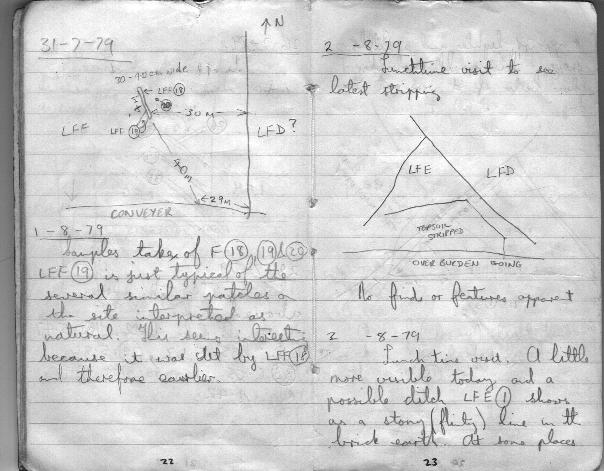 31-7-79
↑N
30-40cm wide
LFF (18)
(20)
LFF (19)
30 M
LFE
LFD?
40m
29m
CONVEYER
1-8-79
Samples taken of F (18), (19) & (20)
LFF (19) is just typical of the
several similar patches on
the site interpreted as
natural. This is interest
because it was cut by LFF (18)
and therefore earlier.
22
2 -8-79
Lunchtime visit to see
latest stripping
LFE
LFD
TOPSOIL
STRIPPED
OVERBURDEN GOING
No finds or features apparent
2 -8-79
Lunch time visit. A little
more visible today and a
possible ditch LFE (1) shows
as a stony (flinty) line in the
brick earth. At some places
23